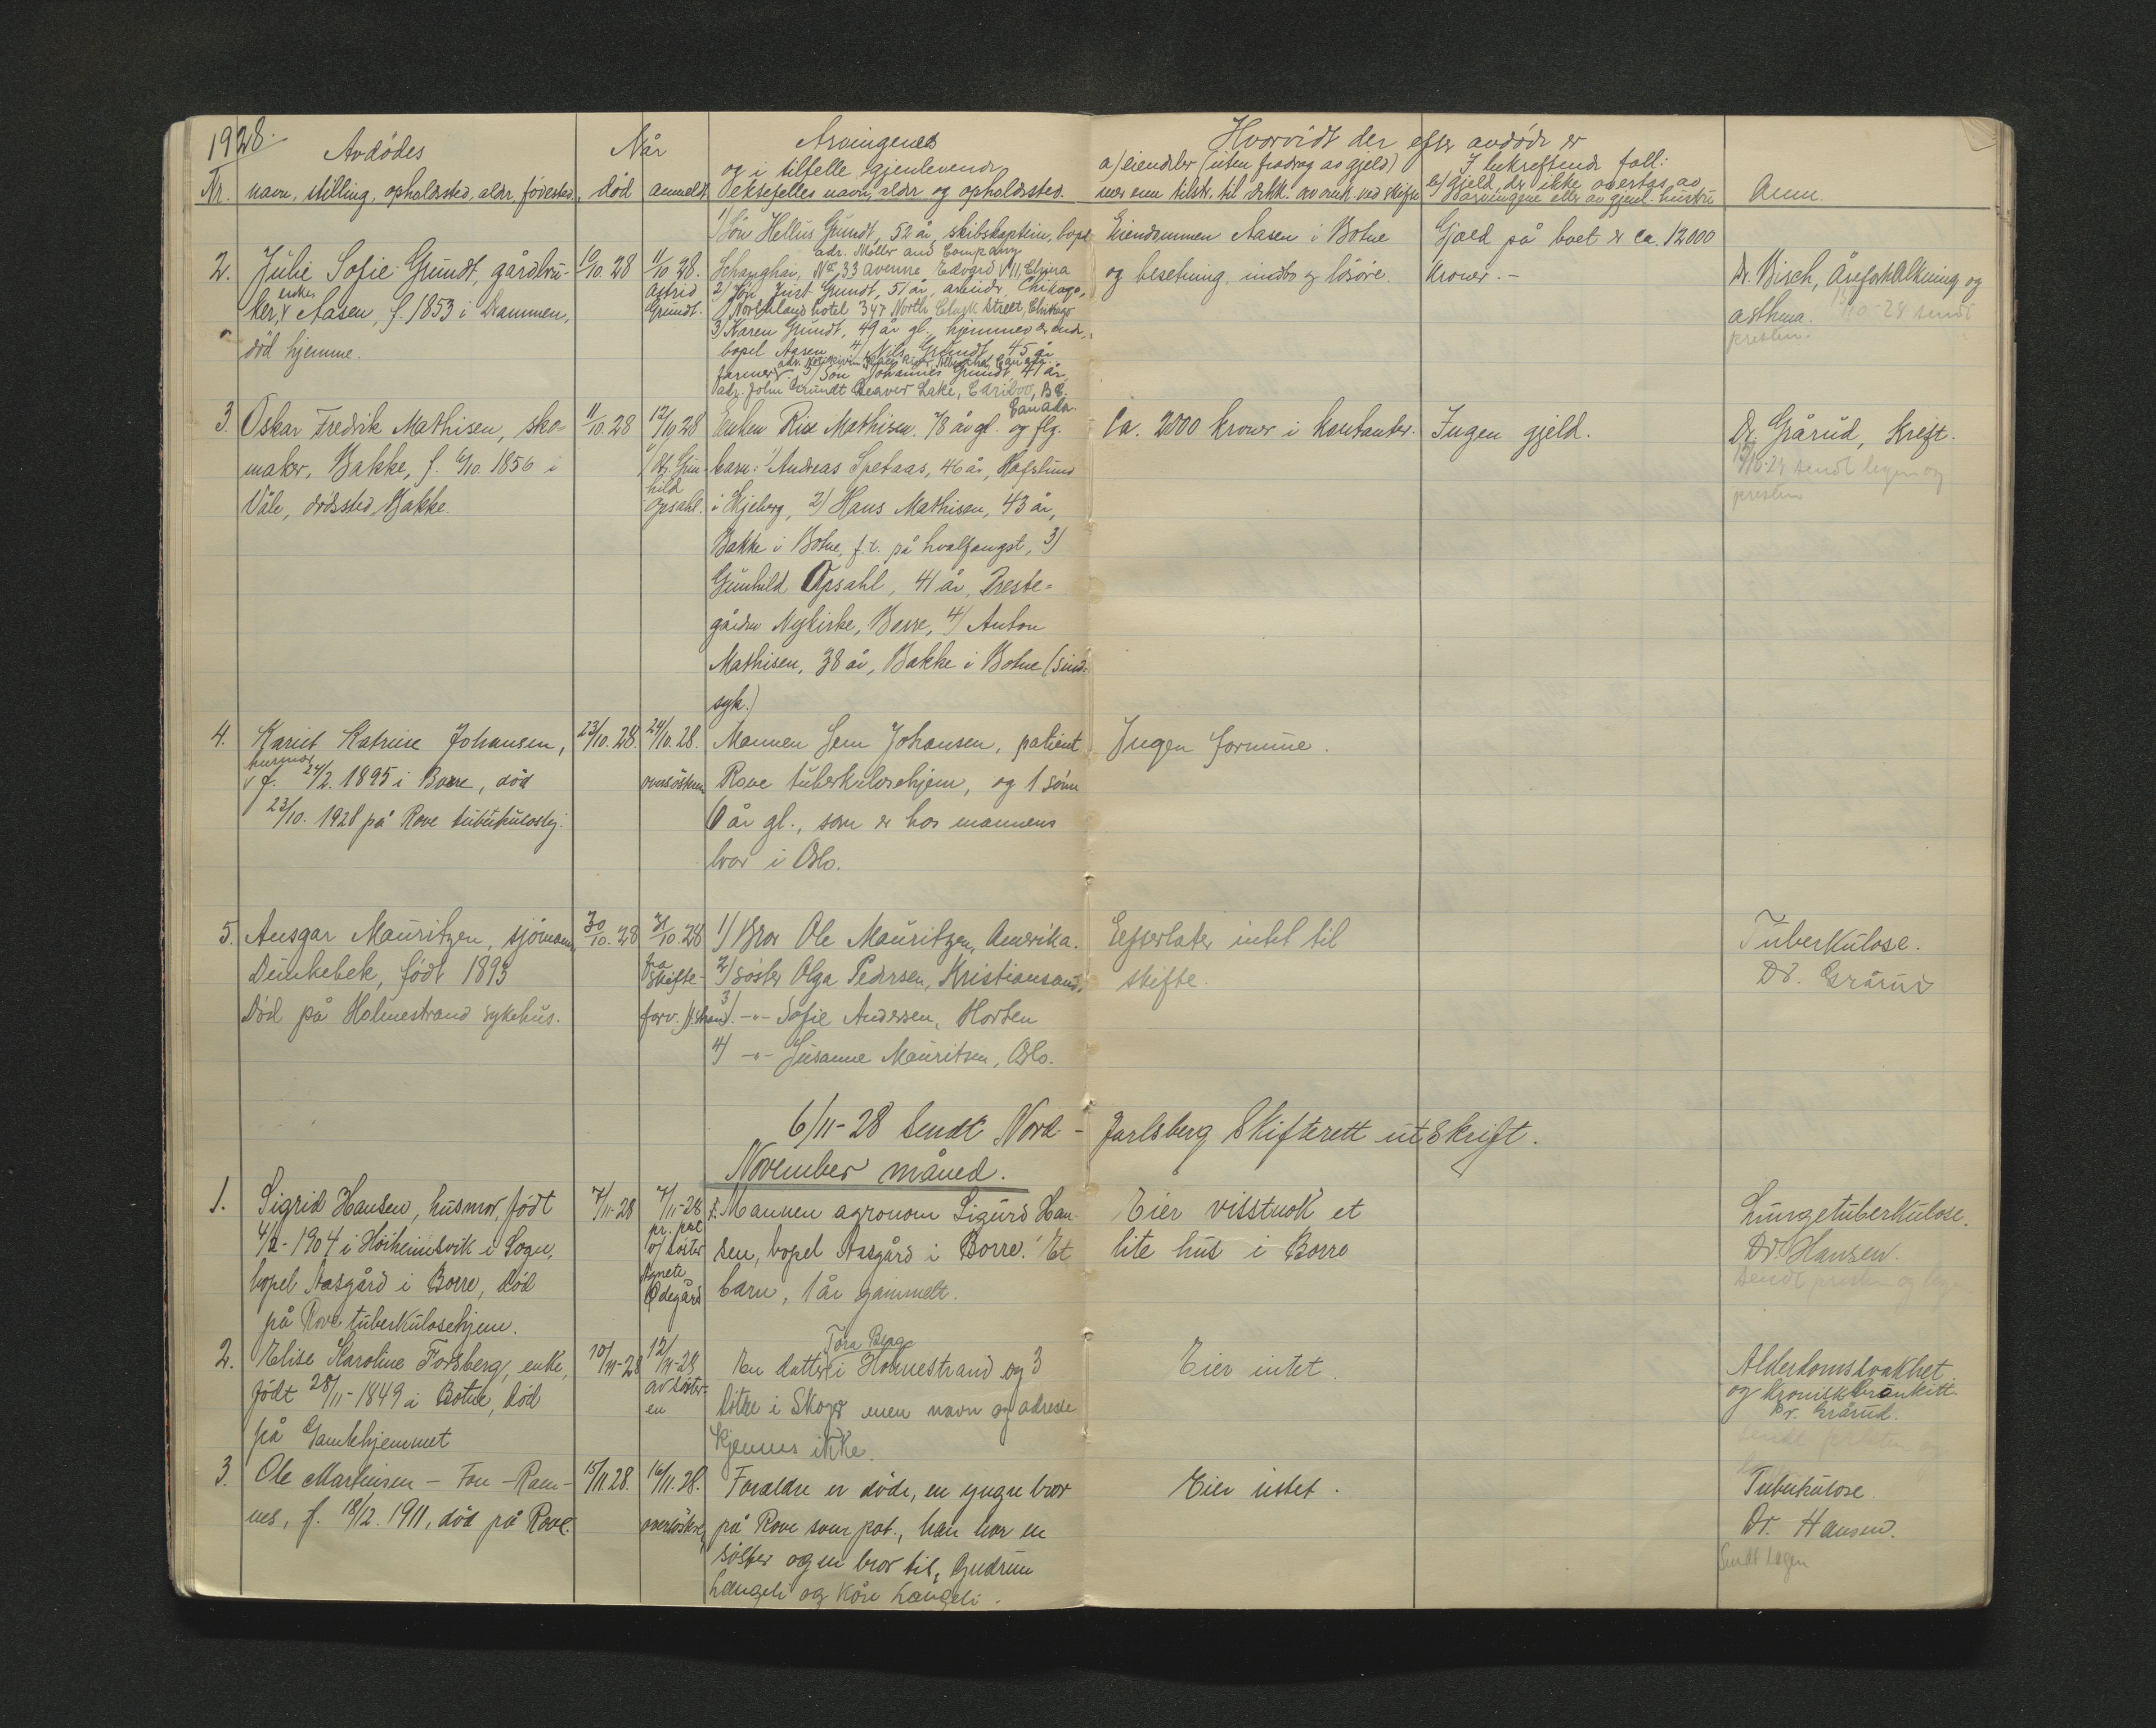 1928.
Avdödes
Når
Arvingenes
Hvorvidt der efter avdöde er
og i tilfelle gjenlevende
a) eiendeler (uten fradrag av gjeld)
I bekreftende fall:
Nr. navn, stilling, opholdssted, alder, födested. död anmeldt ektefelles navn, alder og opholdssted.
mer enn tilstr. til dekk. av omk. ved skifte
b) gjeld, der ikke overtas av arvingene eller av gjenl. hustru
Anm.
2. Julie Sofie Grundt, gårdbru-
ker, enke, Aasen, f. 1853 i Drammen,
död hjemme.
10/10 28
11/10 28.
Astrid
Grundt.
1) Sön Hellus Grundt, 52 år, skibskaptein, bopel
adr. Möller and Company
Schanghai, No 33 avenue Edvard VII,
2) Grundt, 51 år, Chikago,
Northland hotel 347 North Clark Street, Chikago
3) Karen Grundt, 49 år gl., hjemmeværende,
bopel Aasen 4) Nils Grundt 45 år
farmer 5) Sön Johannes Grundt 41 år,
adr. John Grundt Beaver Lake, Cariboo, B.C.
Canada.
Eiendommen Aasen i Botne
og besetning, indbo og lösöre.
Gjæld på boet er ca. 12000
kroner. -
Dr. Bisch, Åreforkalkning og
asthma. 10-28 sendt
presten.
3. Oskar Fredrik Mathisen, sko-
maker, Bakke, f. 6/10. 1856 i
Våle, dödssted Bakke.
11/10 28
12/10 28
Gun-
hild
Opsahl.
Enken Mathisen. 78 år gl. og flg.
barn: 1) Andreas Spetaas, 46 år, Hafslund
i Skjeberg, 2) Hans Mathisen, 43 år,
Bakke i Botne, f.t. på hvalfangst, 3)
Gunhild Opsahl, 41 år, Preste-
gården Nykirke, Borre, 4) Anton
Mathisen, 38 år, Bakke i Botne (sind-
syk.)
Ca. 2000 kroner i kontanter.
Ingen gjeld.
Dr. Grårud, Kreft.
12/10-28 sendt legen og
presten
4. Karen Katrine Johansen,
husmor
f. 24/2. 1895 i Borre, död
23/10. 1928 på Rove tuberkulosehj.
23/10. 28.
24/10. 28.
oversösteren
Mannen Jens Johansen, patient
Rove tuberkulosehjem, og 1 sönn
6 år gl., som er hos mannens
bror i Oslo.
Ingen formue.
5. Ansgar Mauritzen, sjömann,
Dunkebek, födt 1893
Död på Holmestrand sykehus.
30/10. 28
31/10. 28
fra
Skifte-
forv. H.strand.
1) Bror Ole Mauritzen, Amerika.
2) söster Olga Pedersen, Kristiansand,
3) -"- Sofie Andersen, Horten
4) -"- Susanne Mauritsen, Oslo.
Efterlater intet til
skifte.
Tuberkulose.
Dr. Grårud
6/11-28 Sendt Nord-Jarlsberg Skifterett utskrift.
November måned.
1. Sigrid Hansen, husmor, födt
4/2-1904 i Höiheimsvik i Sogn,
bopel Aasgård i Borre, död
på Rove tuberkulosehjem.
7/11-28
7/11-28
v/ söster
Agnete
Ödegård
Mannen agronom Sigurd Han-
sen, bopel Aasgård i Borre. Et
barn, 1 år gammelt.
Eier visstnok et
lite hus i Borre
Lungetuberkulose.
Dr. Hansen.
Sendt presten og lege
2. Elise Karoline Forsberg, enke,
födt 28/11-1849 i Botne, död
på Gamlehjemmet
10/11-28
12/11-28
av söster-
en
Tora Berg
En datter i Holmestrand og 3
döttre i Skoger men navn og adresse
kjennes ikke.
Eier intet.
Alderdomssvakhet
og kronisk bronkitt.
Dr. Grårud.
Sendt presten og
3. Ole Martinsen - Fon - Ram-
nes, f. 18/12. 1911, död på Rove.
15/11. 28.
16/11. 28.
oversöstren
Foreldre er döde, en yngre bror
på Rove som pat., han har en
söster og en bror til, Gudrun
Langeli og Kåre Langeli.
Eier intet.
Tuberkulose.
Dr. Hansen.
Sendt legen